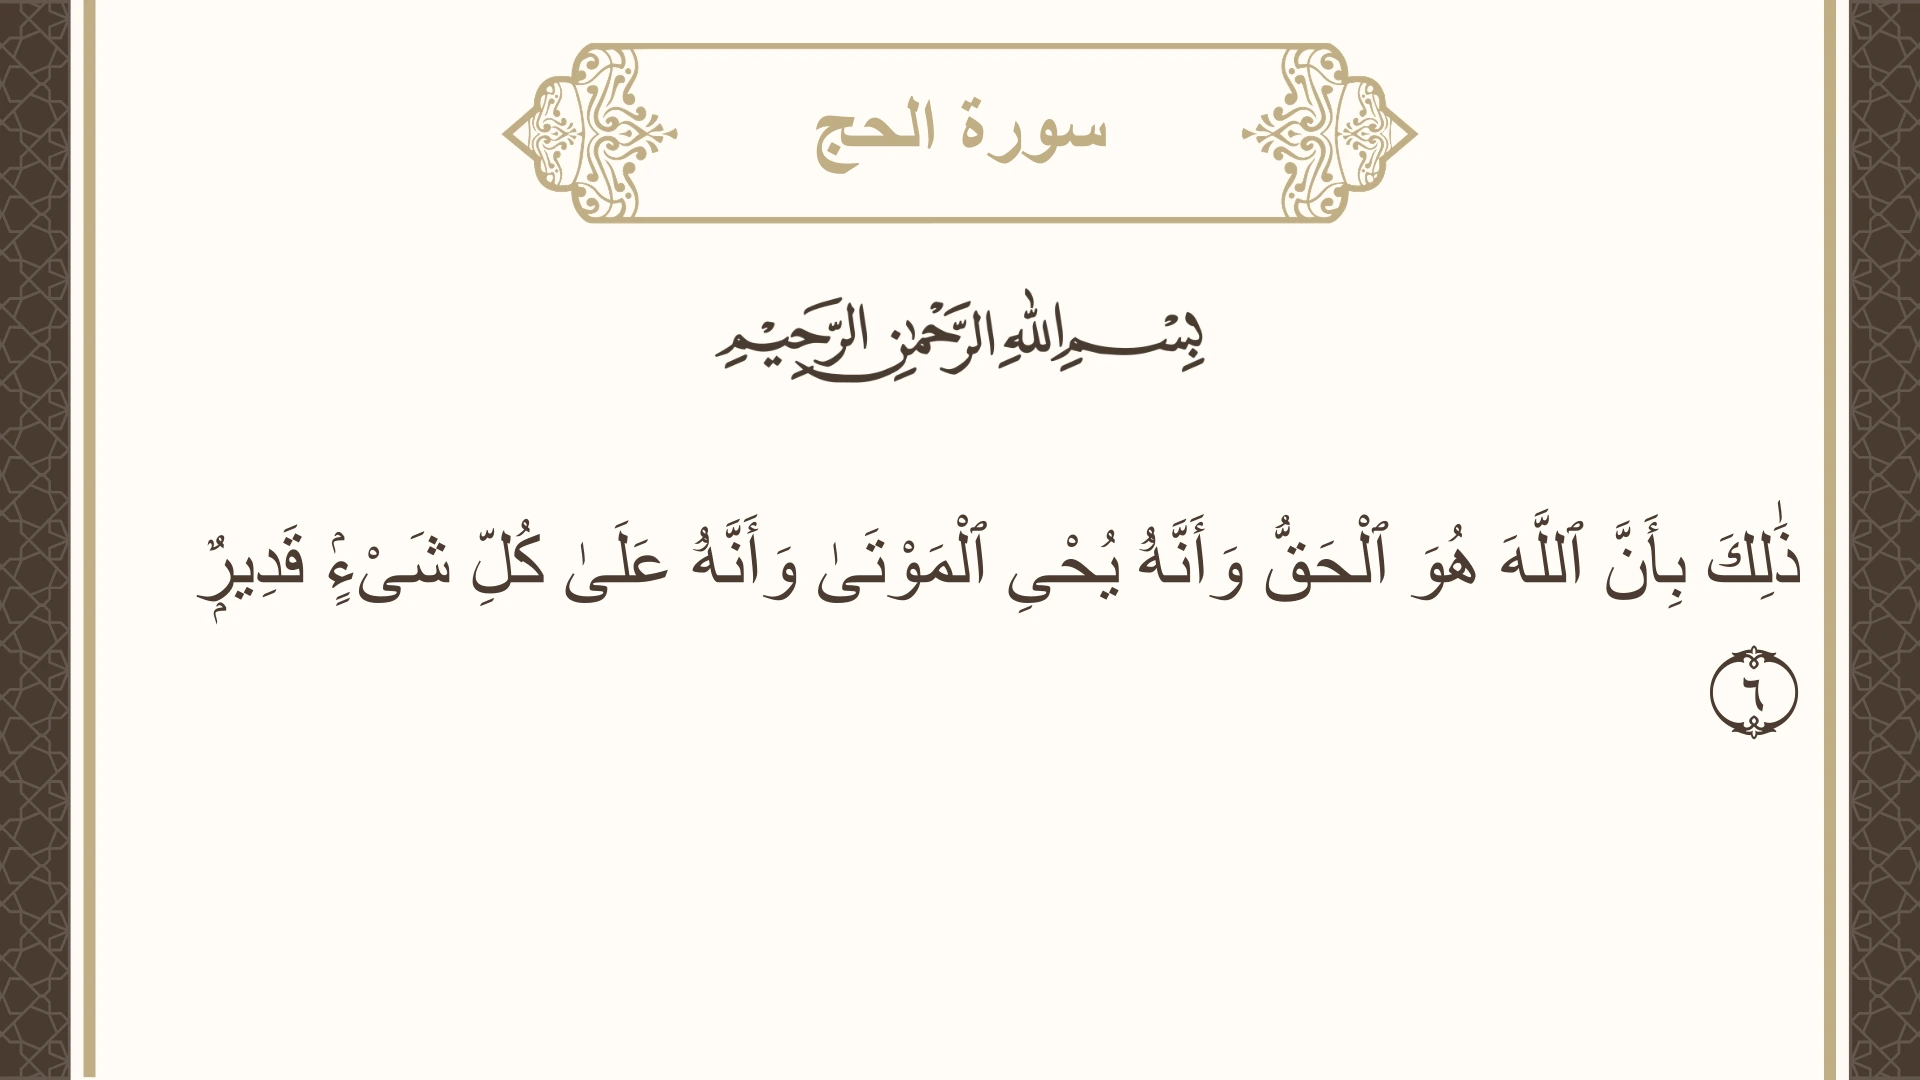 سورة الحج
بِسْمِ اللهِ الرَّحْمٰنِ الرَّحِيْمِ
ذَٰلِكَ بِأَنَّ ٱللَّهَ هُوَ ٱلْحَقُّ وَأَنَّهُۥ يُحْىِ ٱلْمَوْتَىٰ وَأَنَّهُۥ عَلَىٰ كُلِّ شَىْءٍۢ قَدِيرٌۭ
٦